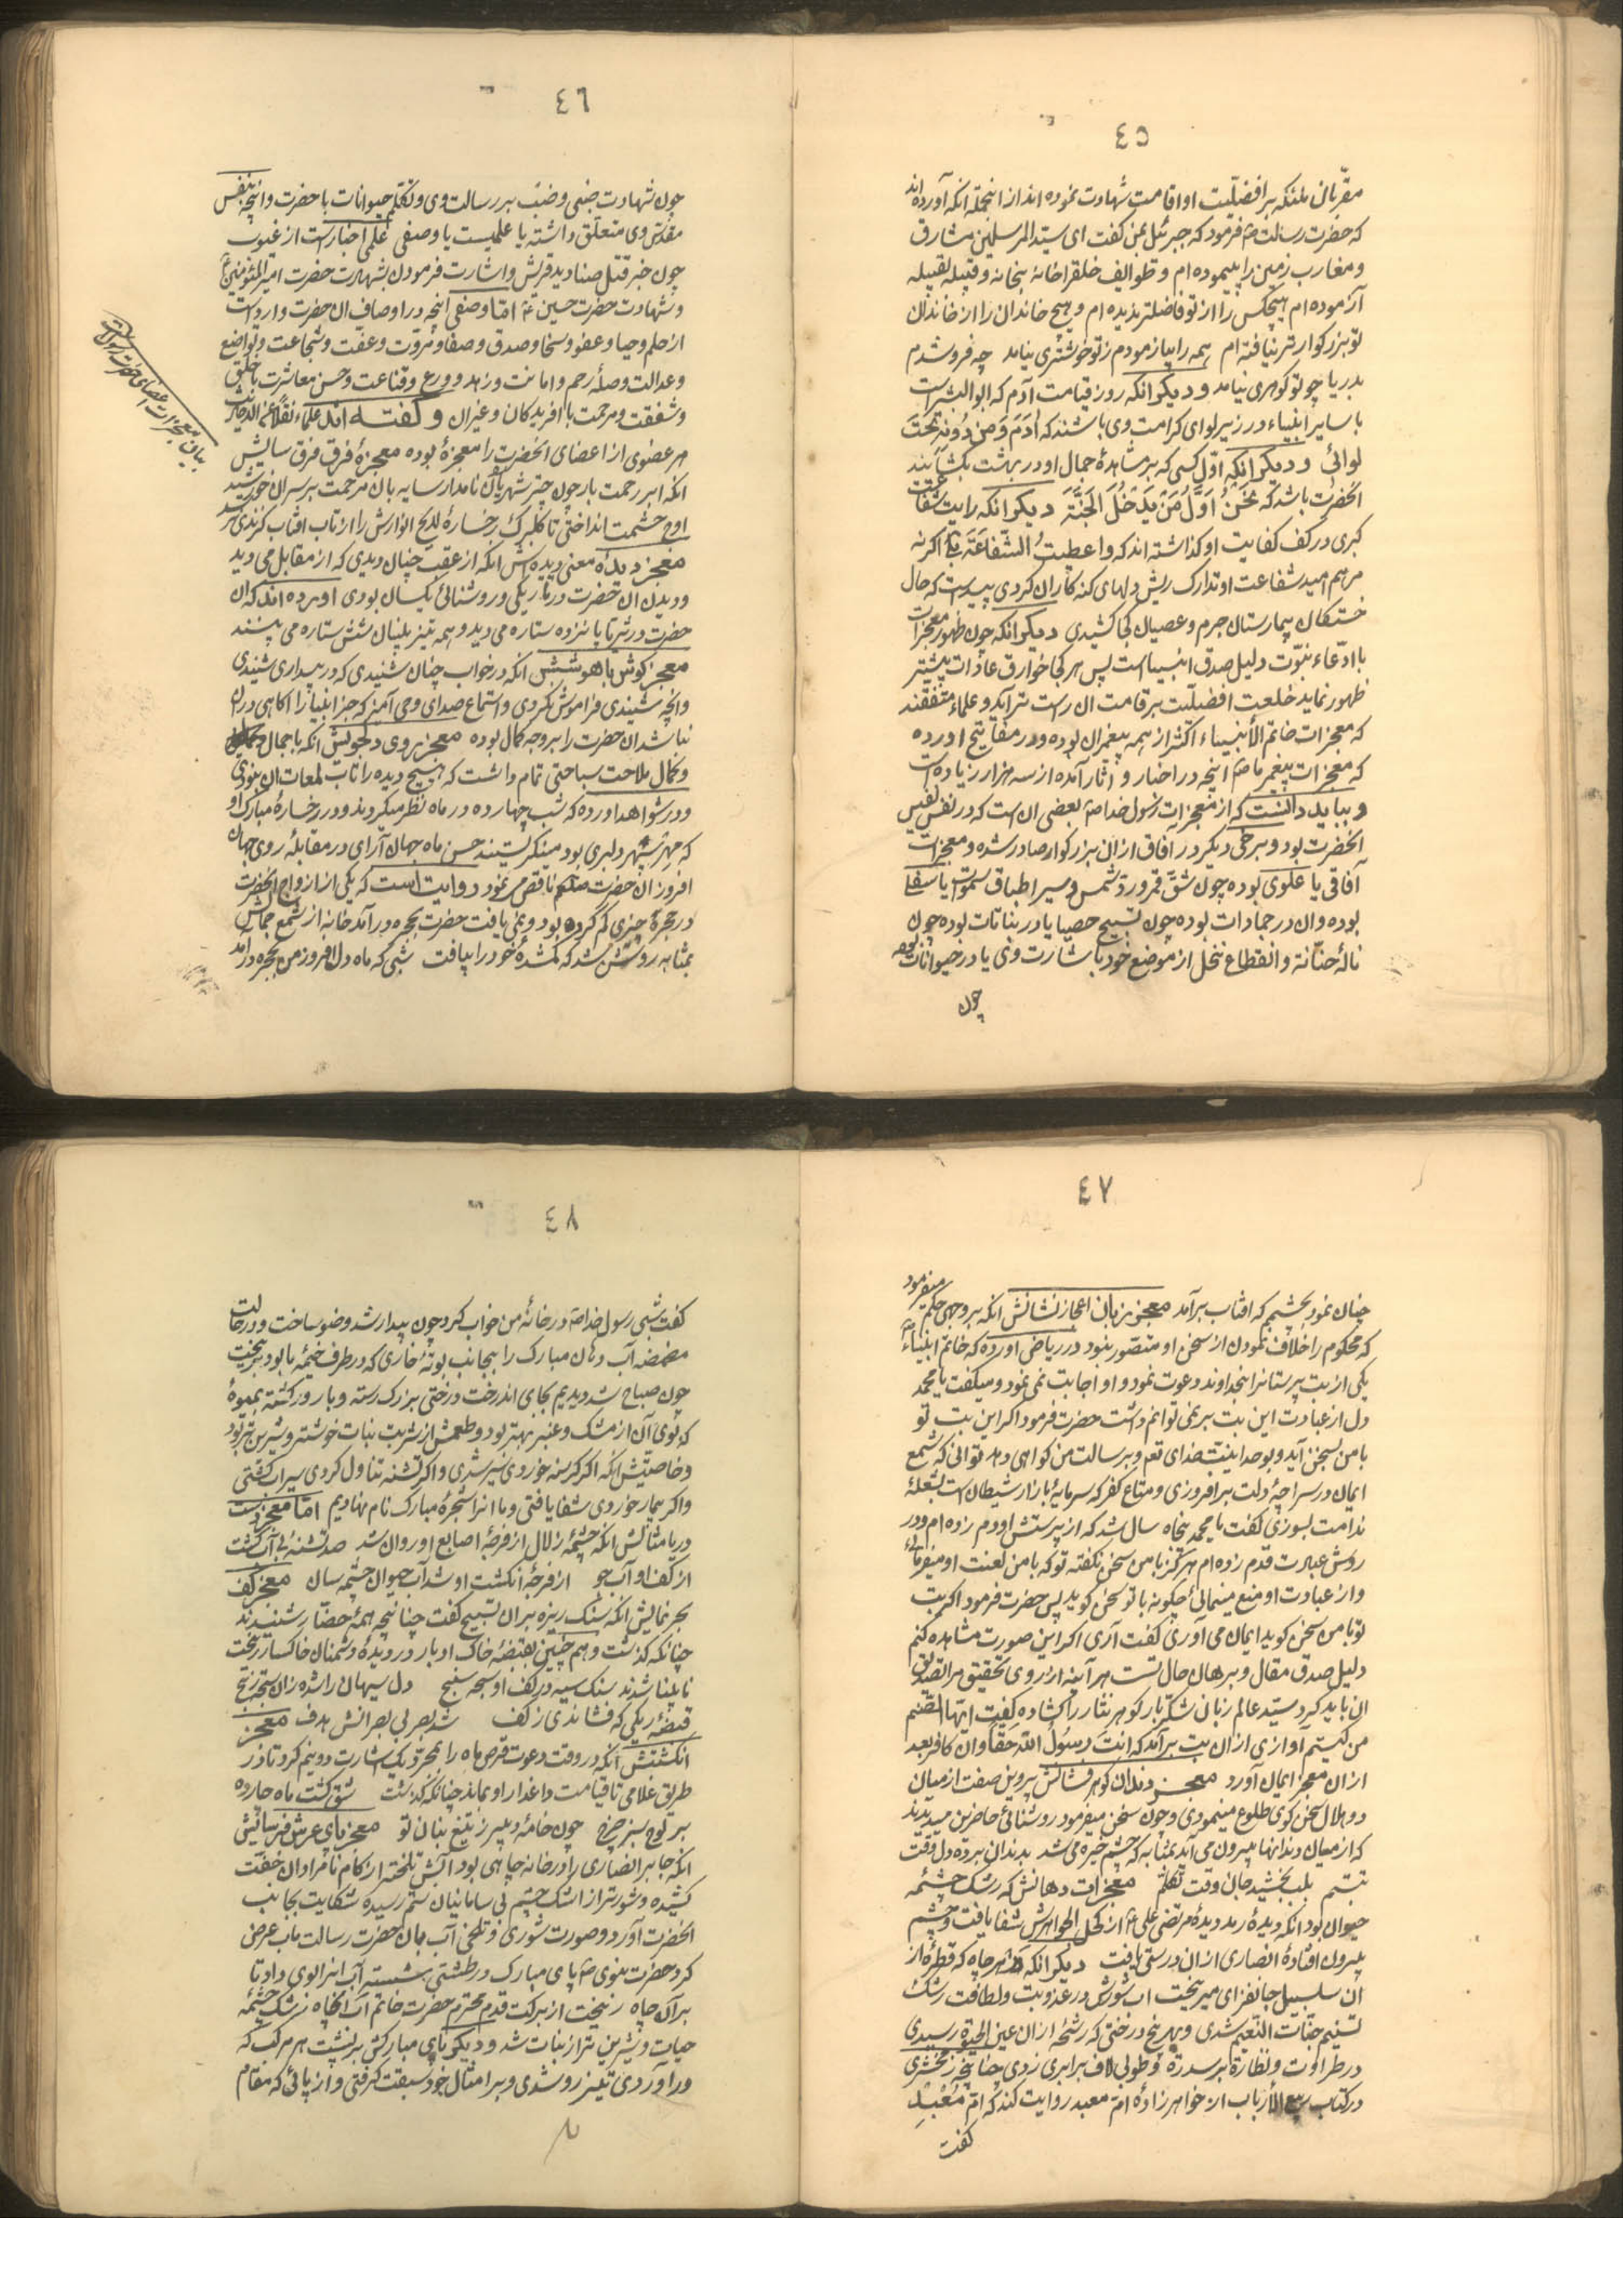 ٤٥
مقربان ملئکه بر افضلیت او اقامت شهادت نموده اند از انجمله انکه آورده اند
که حضرت رسالت ص فرمود که جبرئیل بمن کفت ای سید المرسلین مشارق
ومغارب زمین را پیموده ام وطوایف خلقرا خانه بخانه وقبیله بقبیله
آزموده ام هیچکس را از تو فاضلتر ندیده ام وهیچ خاندان را از خاندان
تو بزرکوارتر نیافته ام همه را بیازمودم ز تو خوشتری نیامد چه فرو شدم
بدریا چو تو کوهری نیامد ودیکر انکه روز قیامت آدم که ابوالبشر است
با سایر انبیاء در زیر لوای کرامت وی باشند که آدَمَ وَمَن دُونَه تَحتَ
لوائی ودیکر انکه اول کسی که بر مشاهدهٔ جمال او در بهشت بکشایند
انحضرت باشد که نَحنُ اَوَّلُ مَن یَدخُلُ الجَنَّةَ دیکر انکه رایت شفاعت
کبری در کف کفایت او کذاشته اند که واعطیتُ الشَّفاعَةَ اکر نه
مرهم امید شفاعت او تدارک ریش دلهای کنه کاران کردی پیداست که حال
خستکان بیمارستان جرم وعصیان کجا کشیدی دیکر انکه چون ظهور معجزات
با ادعاء نبوت دلیل صدق انبیا است پس هر کجا خوارق عادات بیشتر
ظهور نماید خلعت افضلیت بر قامت ان راست تر آید وعلماء متفقند
که معجزات خاتم الأنبیاء اکثر از همه پیغمبران بوده ودر مفاتیح اورده
که معجزات پیغمبر ما ص انچه در اخبار و آثار آمده از سه هزار زیاده است
وبباید دانست که از معجزات رسول خدا ص بعضی ان است که در نفس نفیس
انحضرت بود وبرخی دیکر در آفاق ازان بزرکوار صادر شده ومعجزات
آفاقی یا علوی بوده چون شق قمر ورد شمس وسیر اطباق سموات یا سفلی
بوده وان در جمادات بوده چون تسبیح حصیا یا در نباتات بوده چون
نالهٔ حنانه وانقطاع نخل از موضع خود باشارت وی یا در حیوانات بوده
چون
٤٦
چون شهادت ضبی وضب بر رسالت وی وتکلم حیوانات با حضرت وانچه بنفس
مقدس وی متعلق داشته یا علمیست یا وصفی علمی اخبار است از غیوب
چون خبر قتل صنادید قریش واشارت فرمودن بشهادت حضرت امیر المؤمنین
وشهادت حضرت حسین ع اما وصفی انچه در اوصاف ان حضرت وارد است
از حلم وحیا وعفو وسخا وصدق وصفا ومروت وعفت وشجاعت وتواضع
وعدالت وصلهٔ رحم وامانت وزهد وورع وقناعت وحسن معاشرت با خلق
وشفقت ومرحمت با آفریدکان وغیران وکفته اند علماء
هر عضوی از اعضای انحضرت را معجزهٔ بوده معجزهٔ فرق فرق سایش
انکه ابر رحمت بار چون چتر شهریاران نامدار سایه بان مرحمت بر سر ان خورشید
اوج حشمت انداختی تا کلبرک رخسارهٔ لایح الانوارش را از تاب افتاب کزندی نرسد
معجز دیدهٔ معنی دیده اش انکه از عقب چنان دیدی که از مقابل می دید
ودیدن ان حضرت در تاریکی وروشنائی یکسان بودی اورده اند که ان
حضرت در ثریا پانزده ستاره می دید وهمه تیز بینان شش ستاره می بینند
معجز کوش با هوشش انکه در خواب چنان شنیدی که در بیداری شنیدی
وانچه شنیدی فراموش نکردی واستماع صدای وحی آمیز که جز انبیا را اکاهی دران
نباشد ان حضرت را بر وجه کمال بوده معجز روی دلجویش انکه با جمال
وکمال ملاحت سباحتی تمام داشت که هیچ دیده را تاب لمعات ان نبودی
ودر شواهد اورده که شب چهارده در ماه نظر میکردند ودر رخسارهٔ مبارک او
که مهر سپهر دلبری بود مینکریستند حسن ماه جهان آرای در مقابلهٔ روی جهان
افروز ان حضرت صلعم ناقص می نمود روایت است که یکی از ازواج انحضرت
در حجرهٔ چیزی کم کرده بود ونمی یافت حضرت بحجره درآمد خانه از شمع جمالش
بمثابه روشن شد که کمشدهٔ خود را بیافت شبی که ماه دل افروز من بحجره درآمد
بیان معجزات اعضای حضرت رسالت
٤٧
چنان نمود بچشمم که افتاب برآمد معجز زبان اعجاز نشانش انکه بر وجهی حکم میفرمود
که محکوم را خلاف نمودن از سخن او متصور نبود در ریاض اورده که خاتم انبیاء ص
یکی از بت پرستانرا بخداوند دعوت نمود واو اجابت نمی نمود ومیکفت یا محمد
دل از عبادت این بت بر نمی توانم داشت حضرت فرمود اکر این بت تو
با من بسخن آید وبوحدانیت خدای تعم وبر رسالت من کواهی دهد توانی که شمع
ایمان در سراچهٔ دلت بر افروزی ومتاع کفر که سرمایهٔ بازار شیطان است بشعلهٔ
ندامت بسوزی کفت یا محمد پنجاه سال شد که از پرستش او دم زده ام ودر
روش عبادت قدم زده ام هرکز با من سخن نکفته تو که با من لعنت او میفرمائی
واز عبادت او منع مینمائی چکونه با تو سخن کوید پس حضرت فرمود اکر بت
تو با من سخن کوید ایمان می آوری کفت آری اکر این صورت مشاهده کنم
دلیل صدق مقال وبرهان حال تست هر آینه از روی تحقیق مرا تصدیق
ان باید کرد سید عالم زبان شکر بار کوهر نثار را کشاده کفت ایها الصنم
من کیستم آوازی ازان بت برآمد که انتَ رَسُولُ اللّه حَقاً وان کافر بعد
ازان معجز ایمان آورد معجز دندان کوهر فشانش پروین صفت از میان
دو هلال سخن کوی طلوع مینمودی وچون سخن میفرمود روشنائی حاضرین میدیدند
که از میان دندانها بیرون می آید بمثابه که چشم خیره می شد بدندان برده دل وقت
تبسم بلب بخشید جان وقت تکلم معجزات دهانش که رشک چشمه
حیوان بود انکه دیدهٔ رمد دیدهٔ مرتضی علی ع از کحل الجواهرش شفا یافت وچشم
بیرون افتادهٔ انصاری ازان درستی یافت دیکر انکه هر چاه که قطرهٔ از
ان سلسبیل جانفزای میریخت اب شورش در عذوبت ولطافت رشک
تسنیم جنات النعیم شدی وبهر بیخ درختی که رشحهٔ ازان عین الحیوة رسیدی
در طراوت ونظارة بر سدرة وطوبی لاف برابری زدی چنانچه زمخشری
در کتاب ربیع الأرباب از خواهر زادهٔ ام معبد روایت کند که ام مَعبد
کفت
٤٨
کفت شبی رسول خدا ص در خانهٔ من خواب کرد چون بیدار شد وضو ساخت ودر حالت
مضمضه آب دهان مبارک را بجانب بوتهٔ خاری که در طرف خیمه ما بود بریخت
چون صباح شد دیدیم بجای اندرخت درختی بزرک رسته وبارور کشته بمیوهٔ
که بوی آن از مشک وعنبر بهتر بود وطعمش از شربت نبات خوشتر وشیرین تر بود
وخاصیتش انکه اکر کرسنه خوردی سیر شدی واکر تشنه تناول کردی سیراب کشتی
واکر بیمار خوردی شفا یافتی وما انرا شجرهٔ مبارک نام نهادیم اما معجز دست
دریا مثالش انکه چشمه زلال از فرجهٔ اصابع او روان شد صد تشنه بی آب کشت
از کف او آب جو از فرجهٔ انکشت او شد آب حیوان چشمه سان معجز کف
بحر نمایش انکه سنک ریزه بران تسبیح کفت چنانچه همهٔ حضار شنیدند
چنانکه کذشت وهم چنین بقبضهٔ خاک او بار در دیدهٔ دشمنان خاکسار ریخت
نابینا شدند سنک سیه در کف او سبحه سنج دل سیهان را شده زان سبحه رنج
قبضهٔ ریکی که فشاندی ز کف شد بصر بی بصرانش هدف معجز
انکشتش آنکه در وقت دعوت قرص ماه را بمجرد یک اشارت دو نیم کرد تا در
طریق غلامی تا قیامت داغدار او بماند چنانکه کذشت شق کشت ماه چارده
بر لوح سبز چرخ چون خامهٔ دبیر ز تیغ بنان تو معجز پای عرش فرسائیش
انکه جابر انصاری را در خانه چاهی بود آبش تلختر از کام نامرادان خفت
کشیده وشورتر از اشک چشم بی سامانیان ستم رسیده شکایت بجانب
انحضرت آورد وصورت شوری وتلخی آب بدان حضرت رسالت ماب عرض
کرد حضرت نبوی ص پای مبارک در طشتی بشسته آب انرا بوی داد تا
بر آن چاه ریخت از برکت قدم محترم حضرت خاتم آب انچاه رشک چشمهٔ
حیات وشیرین تر از نبات شد ودیکر پای مبارکش بر پشت هر مرکب که
در آوردی تیز رو شدی وبر امثال خود سبقت کرفتی واز پائی که مقام